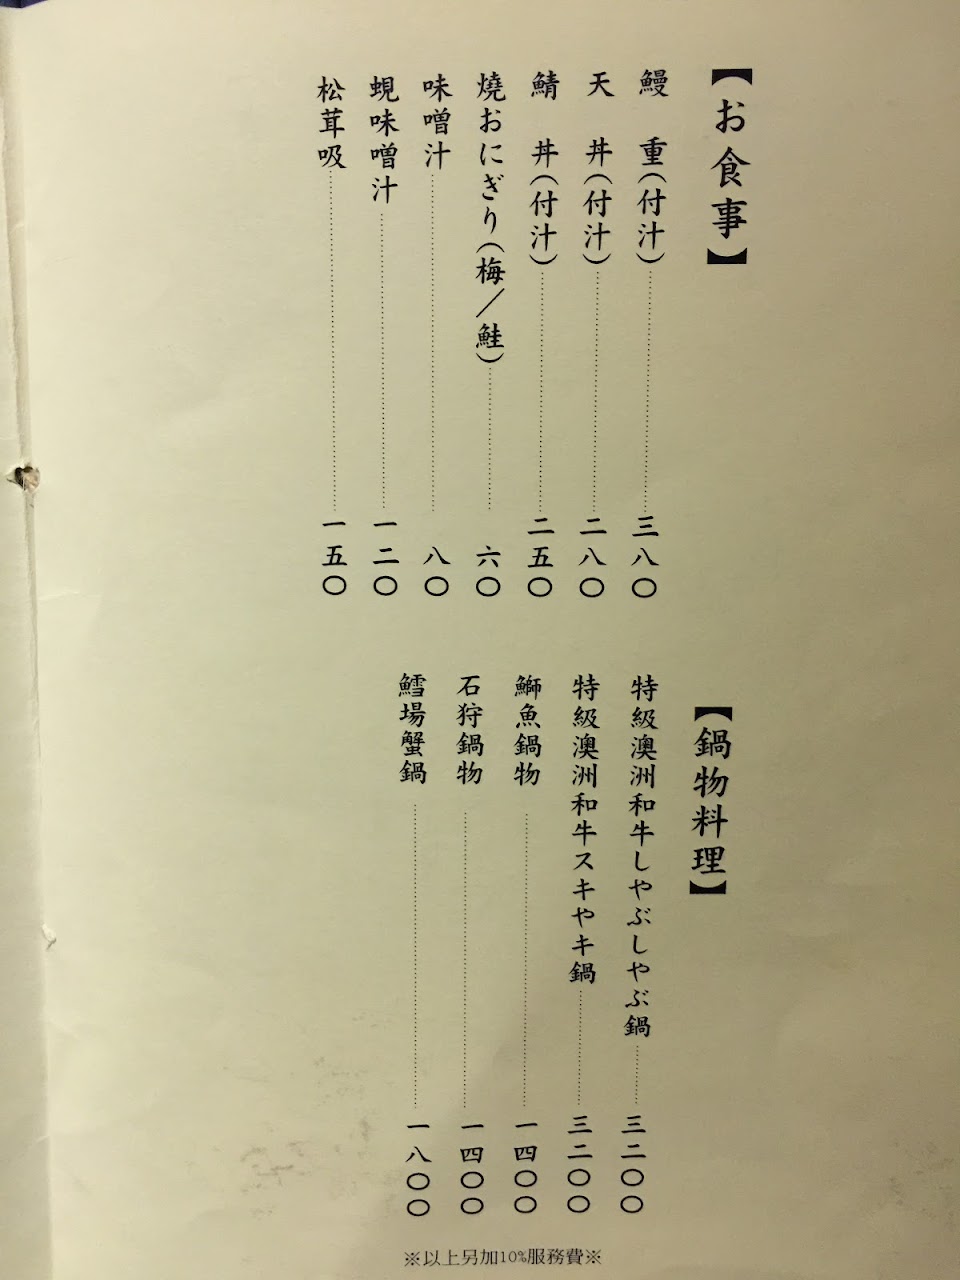 【お食事】
鰻 重(付汁)……三八〇
天 丼(付汁)……二八〇
鯖 丼(付汁)……二五〇
燒おにぎり(梅／鮭)……六〇
味噌汁……八〇
蜆味噌汁……一二〇
松茸吸……一五〇
【鍋物料理】
特級澳洲和牛しやぶしやぶ鍋……三二〇〇
特級澳洲和牛スキやキ鍋……三二〇〇
鰤魚鍋物……一四〇〇
石狩鍋物……一四〇〇
鱈場蟹鍋……一八〇〇
※以上另加10%服務費※